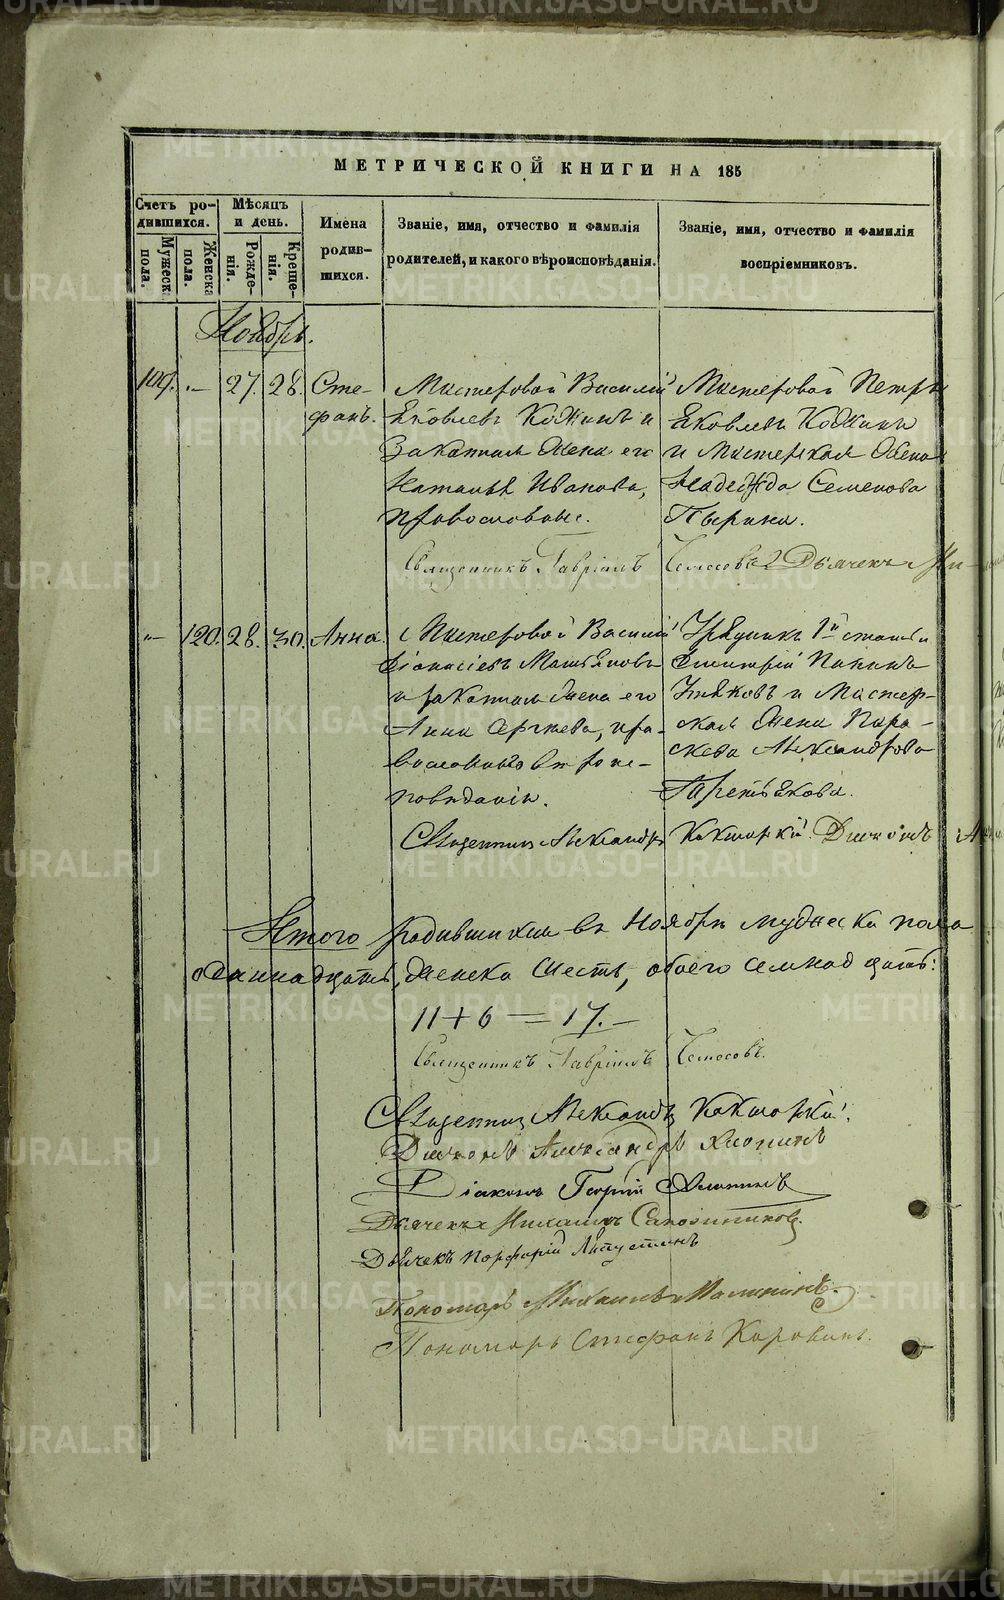 МЕТРИЧЕСКОЙ КНИГИ НА 185
Счетъ ро-
дившихся.
Мужеска пола.
Женска пола.
Мѣсяцъ
и день.
Рожде-
нія.
Креще-
нія.
Имена
родив-
шихся.
Званіе, имя, отчество и фамилія
родителей, и какого вѣроисповѣданія.
Званіе, имя, отчество и фамилія
воспріемниковъ.
Ноябрь.
109. „— 27. 28. Сте-
фанъ.
Мастеровой Василій
Яковлевъ Кожинъ и
Законная Жена его
Наталья Иванова,
православные.
Мастеровой Петръ
Яковлевъ Кожинъ
и Мастерская Жена
Надежда Семенова
Пырина.
Священникъ Гавріилъ Дьячекъ
„— 120. 28. 30. Анна.
Мастеровой Василій
Матвѣновъ
и Законная Жена его
Анна Сергѣева, пра-
вославнаго вѣроис-
повѣданія.
Урядникъ 1й статьи
Дмитрій
и Мастер-
ская Жена Пара-
скева Александрова
Третьякова.
Священникъ Александръ Діаконъ
Итого родившихся въ Ноябрѣ мужеска пола
одиннадцать, женска шесть, обоего семнадцать:
11 + 6 = 17. —
Священникъ Гавріилъ
Священникъ Александръ
Діаконъ Александръ
Діаконъ Георгій
Дьячекъ Михаилъ Сапожниковъ.
Дьячекъ Порфирій
Пономарь Михаилъ Малининъ.
Пономарь Стефанъ Коровинъ.
METRIKI.GASO-URAL.RU